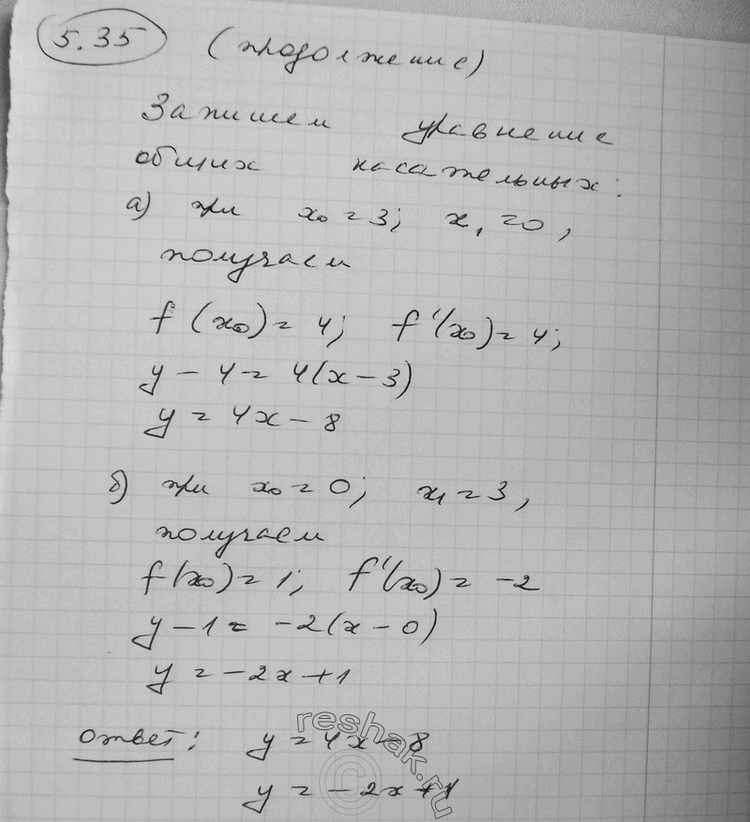 5.35 (продолжение)
Запишем уравнение
общих касательных:
а) при x₀ = 3; x₁ = 0,
получаем
f(x₀) = 4; f'(x₀) = 4;
y - 4 = 4(x - 3)
y = 4x - 8
б) при x₀ = 0; x₁ = 3,
получаем
f(x₀) = 1; f'(x₀) = -2
y - 1 = -2(x - 0)
y = -2x + 1
Ответ: y = 4x - 8
y = -2x + 1
reshak.ru
©